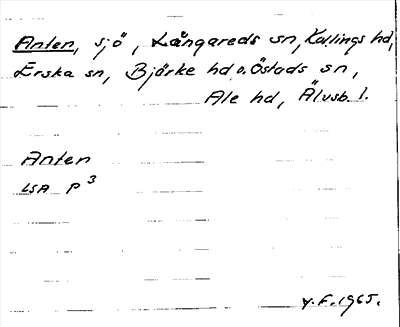 Anten, sjö, Långareds sn, Kullings hd,
Erska sn, Bjärke hd o. Östads sn,
Ale hd, Älvsb. l.
Anten
LSA P 3
Y.F. 1965.